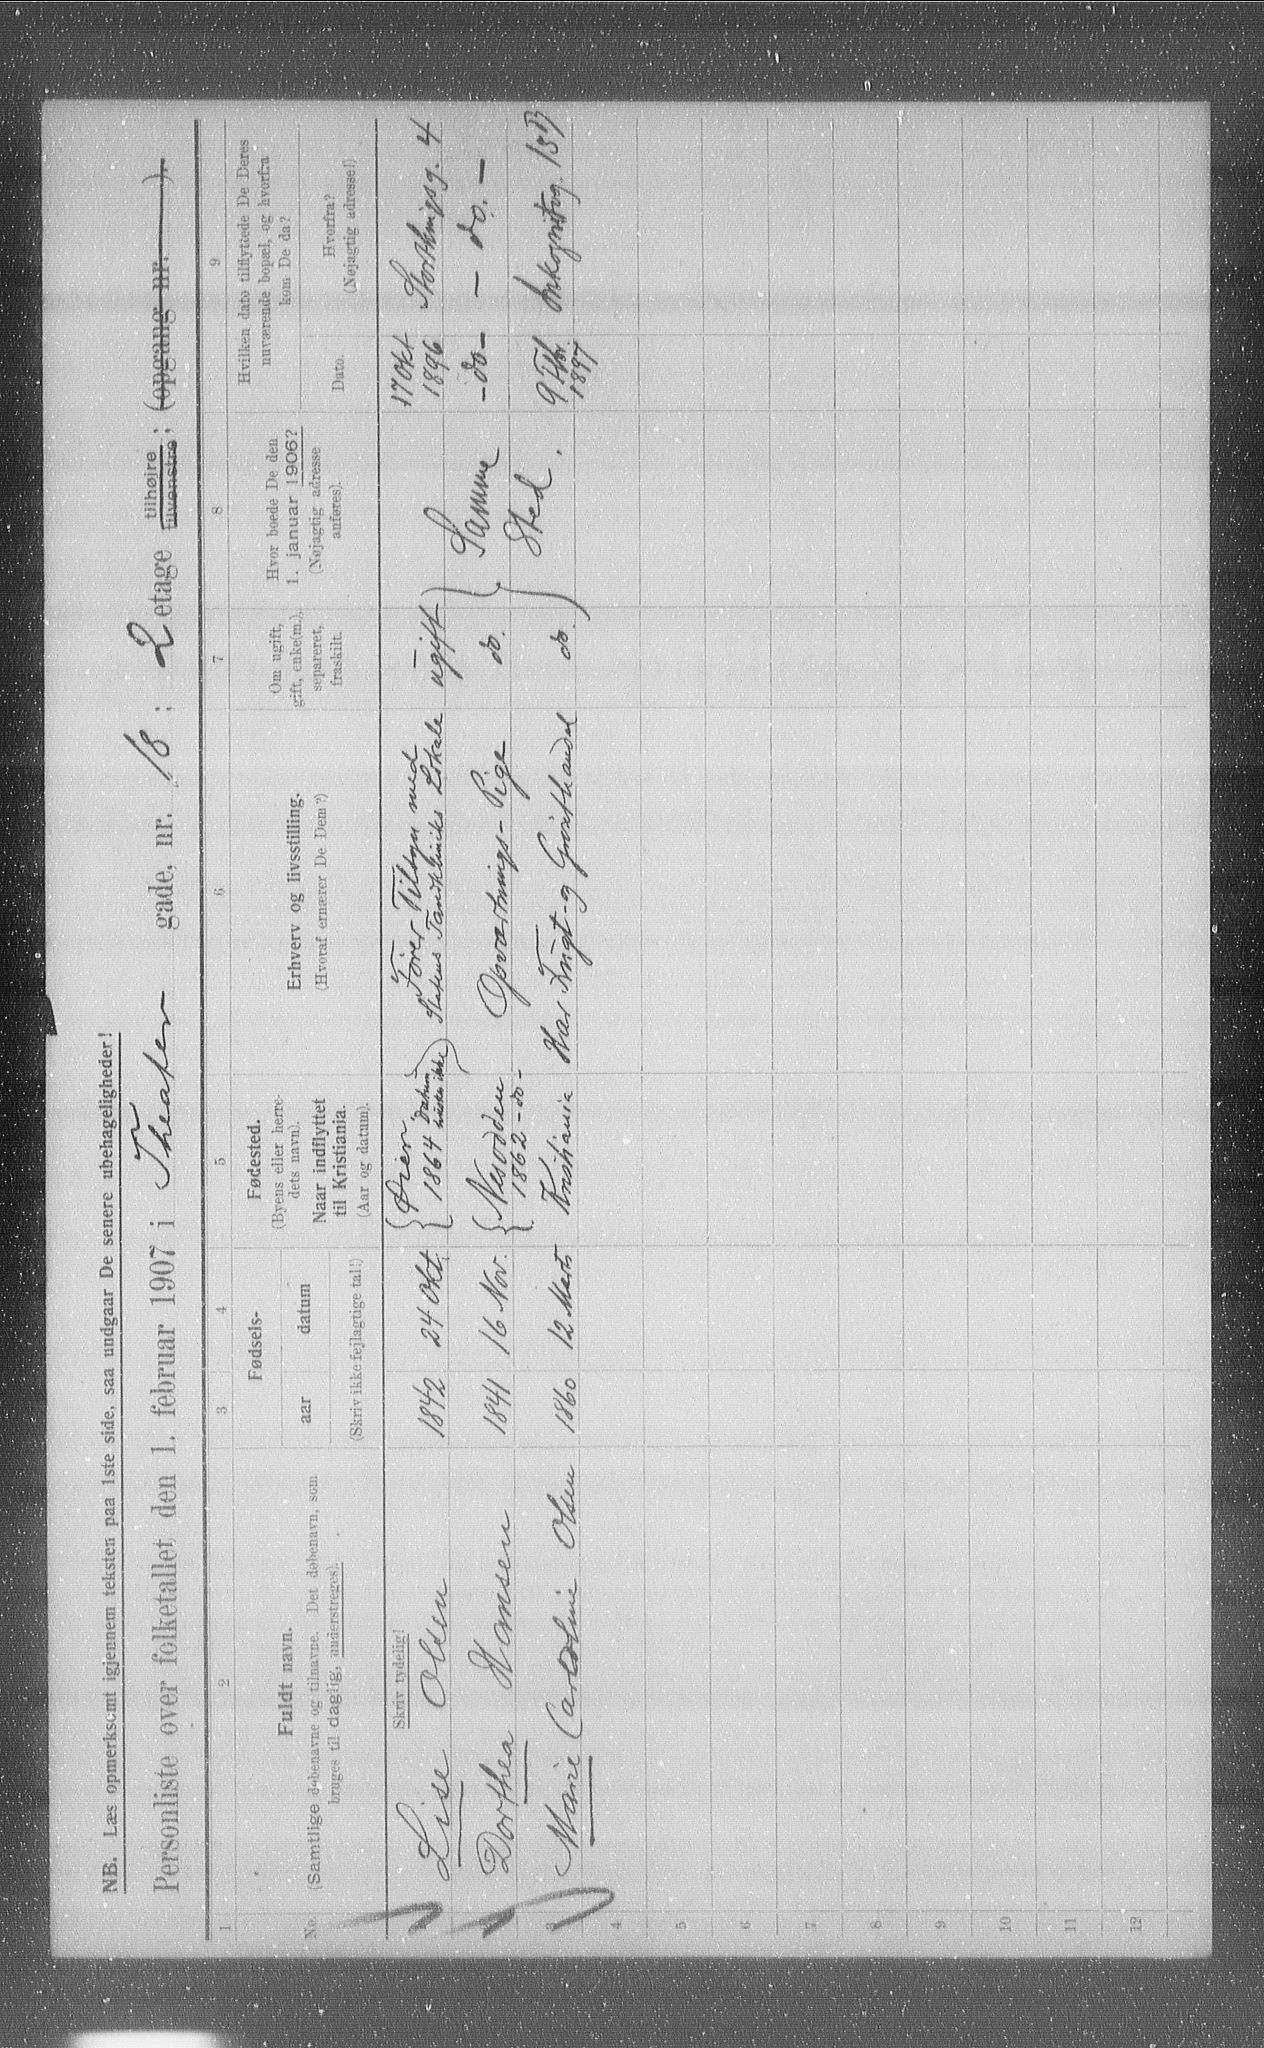 NB. Læs opmerksomt igjennem teksten paa 1ste side, saa undgaar De senere ubehageligheder!
Personliste over folketallet den 1. februar 1907 i Theater gade, nr. 18 ; 2 etage tilhøjre tilvenstre ; (opgang nr. ).
1 2 3 4 5 6 7 8 9
No.
Fuldt navn.
(Samtlige døbenavne og tilnavne. Det døbenavn, som
bruges til daglig, understreges).
Fødsels-
aar datum
(Skriv ikke fejlagtige tal!)
Fødested.
(Byens eller herre-
dets navn).
Naar indflyttet
til Kristiania.
(Aar og datum).
Erhverv og livsstilling.
(Hvoraf ernærer De Dem?)
Om ugift,
gift, enke(m.),
separeret,
fraskilt.
Hvor boede De den
1. januar 1906?
(Nøjagtig adresse
anføres).
Hvilken dato tilflyttede De Deres
nuværende bopæl, og hvorfra
kom De da?
Dato.
Hvorfra?
(Nøjagtig adresse!)
Skriv tydelig!
1 Lise Olsen 1842 24 Okt. 1864 Datum huskes ikke Fører Tilsyn med
Statens Tandkliniks Lokale ugift 17 Okt 1896 Storthingsg. 4
2 Dorthea Hansen 1841 16 Nov. Nesodden
1862 - do - Opvartnings-Pige do. Samme Sted. - do - - do. -
3 Marie Caroline Olsen 1860 12 Marts Kristiania Har Frugt- og Grønthandel do. 9 1897 Inkognitog. 15B
4
5
6
7
8
9
10
11
12